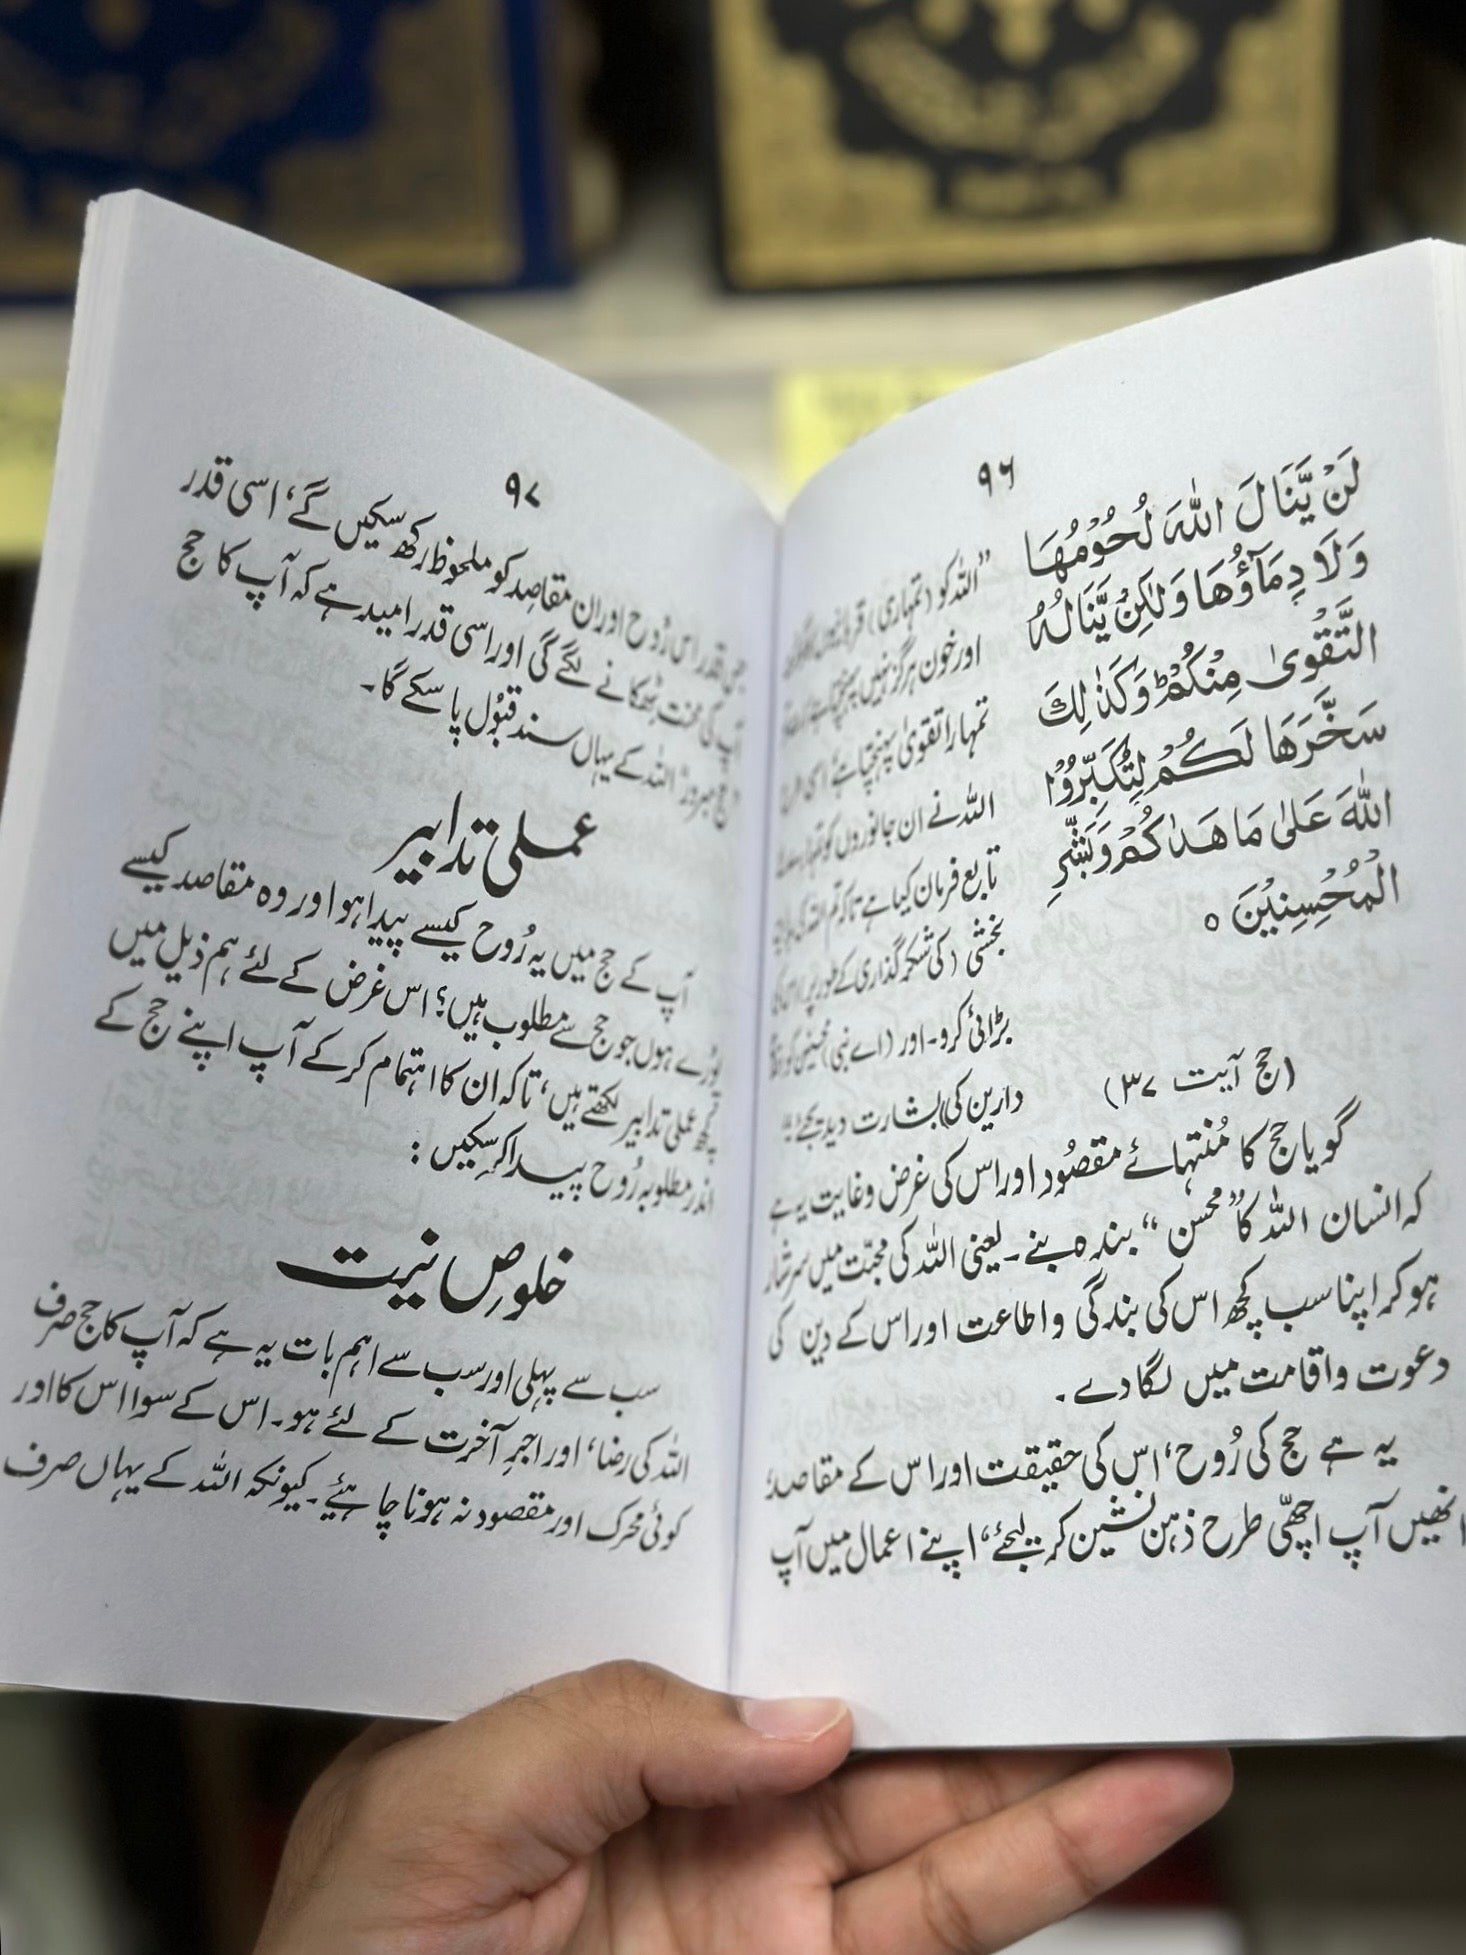 ۹۶
لَنْ يَّنَالَ اللّٰهَ لُحُوْمُهَا
وَلَا دِمَآؤُهَا وَلٰكِنْ يَّنَالُهُ
التَّقْوٰى مِنْكُمْ ؕ وَكَذٰلِكَ
سَخَّرَهَا لَكُمْ لِتُكَبِّرُوْا
اللّٰهَ عَلٰى مَا هَدٰىكُمْ وَبَشِّرِ
الْمُحْسِنِيْنَ ○
(حج آیت ۳۷)
”اللہ کو (تمہاری)
اور خون ہرگز نہیں
تمہارا تقویٰ پہنچتا ہے، اسی
اللہ نے ان جانوروں کو
تابع فرمان کیا ہے تاکہ تم اللہ کی
بخشی (کی شکر گذاری کے طور پر)
بڑائی کرو۔ اور (اے نبی)
دارین کی) بشارت دیدیجئے
گویا حج کا مُنتہائے مقصُود اور اس کی غرض و غایت یہ ہے
کہ انسان اللہ کا ”محسن“ بندہ بنے۔ یعنی اللہ کی محبّت میں سرشار
ہو کر اپنا سب کچھ اس کی بندگی و اطاعت اور اس کے دین کی
دعوت و اقامت میں لگا دے۔
یہ ہے حج کی رُوح، اس کی حقیقت اور اس کے مقاصد؛
انھیں آپ اچھّی طرح ذہن نشین کر لیجئے، اپنے اعمال میں آپ
۹۷
جس قدر اس رُوح اور ان مقاصِد کو ملحوظ رکھ سکیں گے، اسی قدر
آپ کی محنت ٹھکانے لگے گی اور اسی قدر امید ہے کہ آپ کا حج
”حج مبرور“ اللہ کے یہاں سند قبُول پا سکے گا۔
عملی تدابیر
آپ کے حج میں یہ رُوح کیسے پیدا ہو اور وہ مقاصد کیسے
پُورے ہوں جو حج سے مطلوب ہیں؟ اس غرض کے لئے ہم ذیل میں
کچھ عملی تدابیر لکھتے ہیں، تاکہ ان کا اہتمام کر کے آپ اپنے حج کے
اندر مطلوبہ رُوح پیدا کر سکیں :
خلوصِ نیت
سب سے پہلی اور سب سے اہم بات یہ ہے کہ آپ کا حج صرف
اللہ کی رضا، اور اجرِ آخرت کے لئے ہو۔ اس کے سوا اس کا اور
کوئی محرک اور مقصود نہ ہونا چاہیئے۔ کیونکہ اللہ کے یہاں صرف